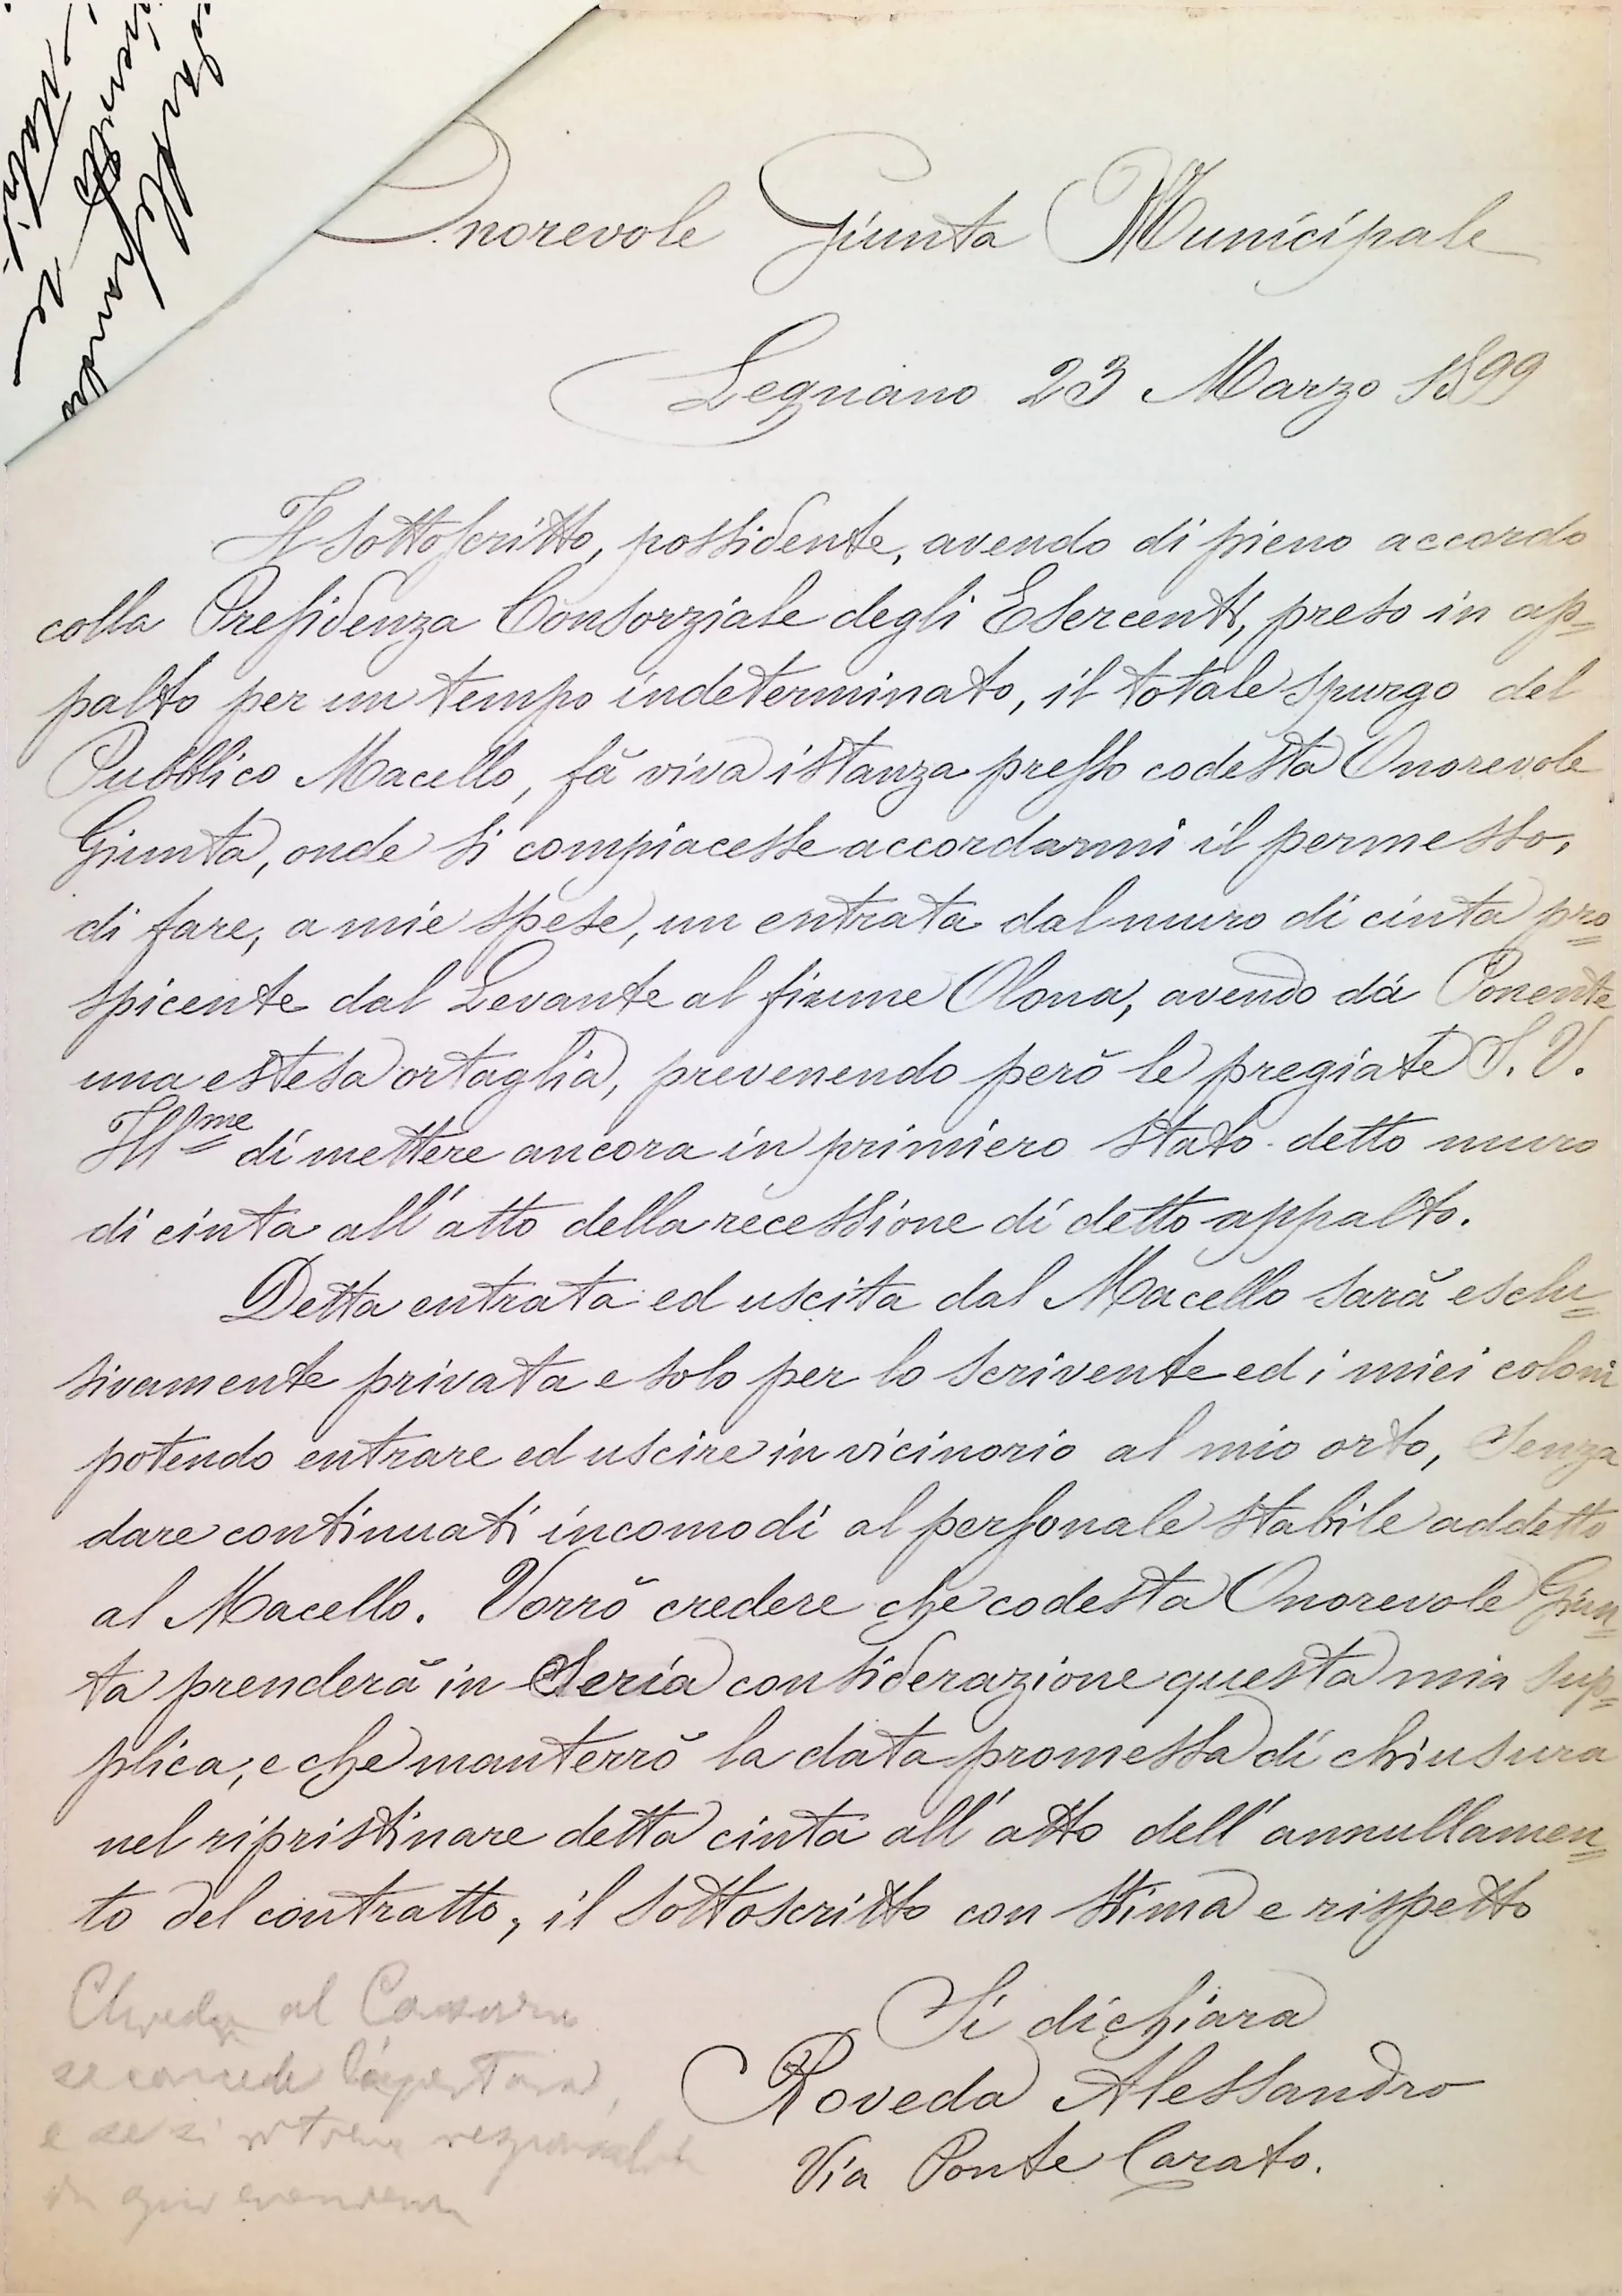 Onorevole Giunta Municipale
Legnano 23 Marzo 1899
Il sottoscritto, possidente, avendo di pieno accordo
colla Presidenza Consorziale degli Esercenti, preso in ap=
palto per un tempo indeterminato, il totale spurgo del
Pubblico Macello, fà viva istanza presso codesta Onorevole
Giunta, onde si compiacesse accordarmi il permesso,
di fare, a mie spese, un entrata dal muro di cinta pro=
spicente dal Levante al fiume Olona, avendo dà Ponente
una estesa ortaglia, prevenendo però le pregiate S. V.
Ill.me di mettere ancora in primiero stato detto muro
di cinta all'atto della recessione di detto appalto.
Detta entrata ed uscita dal Macello sarà esclu=
sivamente privata e solo per lo scrivente ed i miei coloni
potendo entrare ed uscire in vicinorio al mio orto, senza
dare continuati incomodi al personale stabile addetto
al Macello. Vorrò credere che codesta Onorevole Giun=
ta prenderà in Seria considerazione questa mia sup=
plica, e che manterrò la data promessa di chiusura
nel ripristinare detta cinta all'atto dell'annullamen=
to del contratto, il sottoscritto con stima e rispetto
Si dichiara
Roveda Alessandro
Via Ponte Carato.
al
se concede l'apertura,
e se si